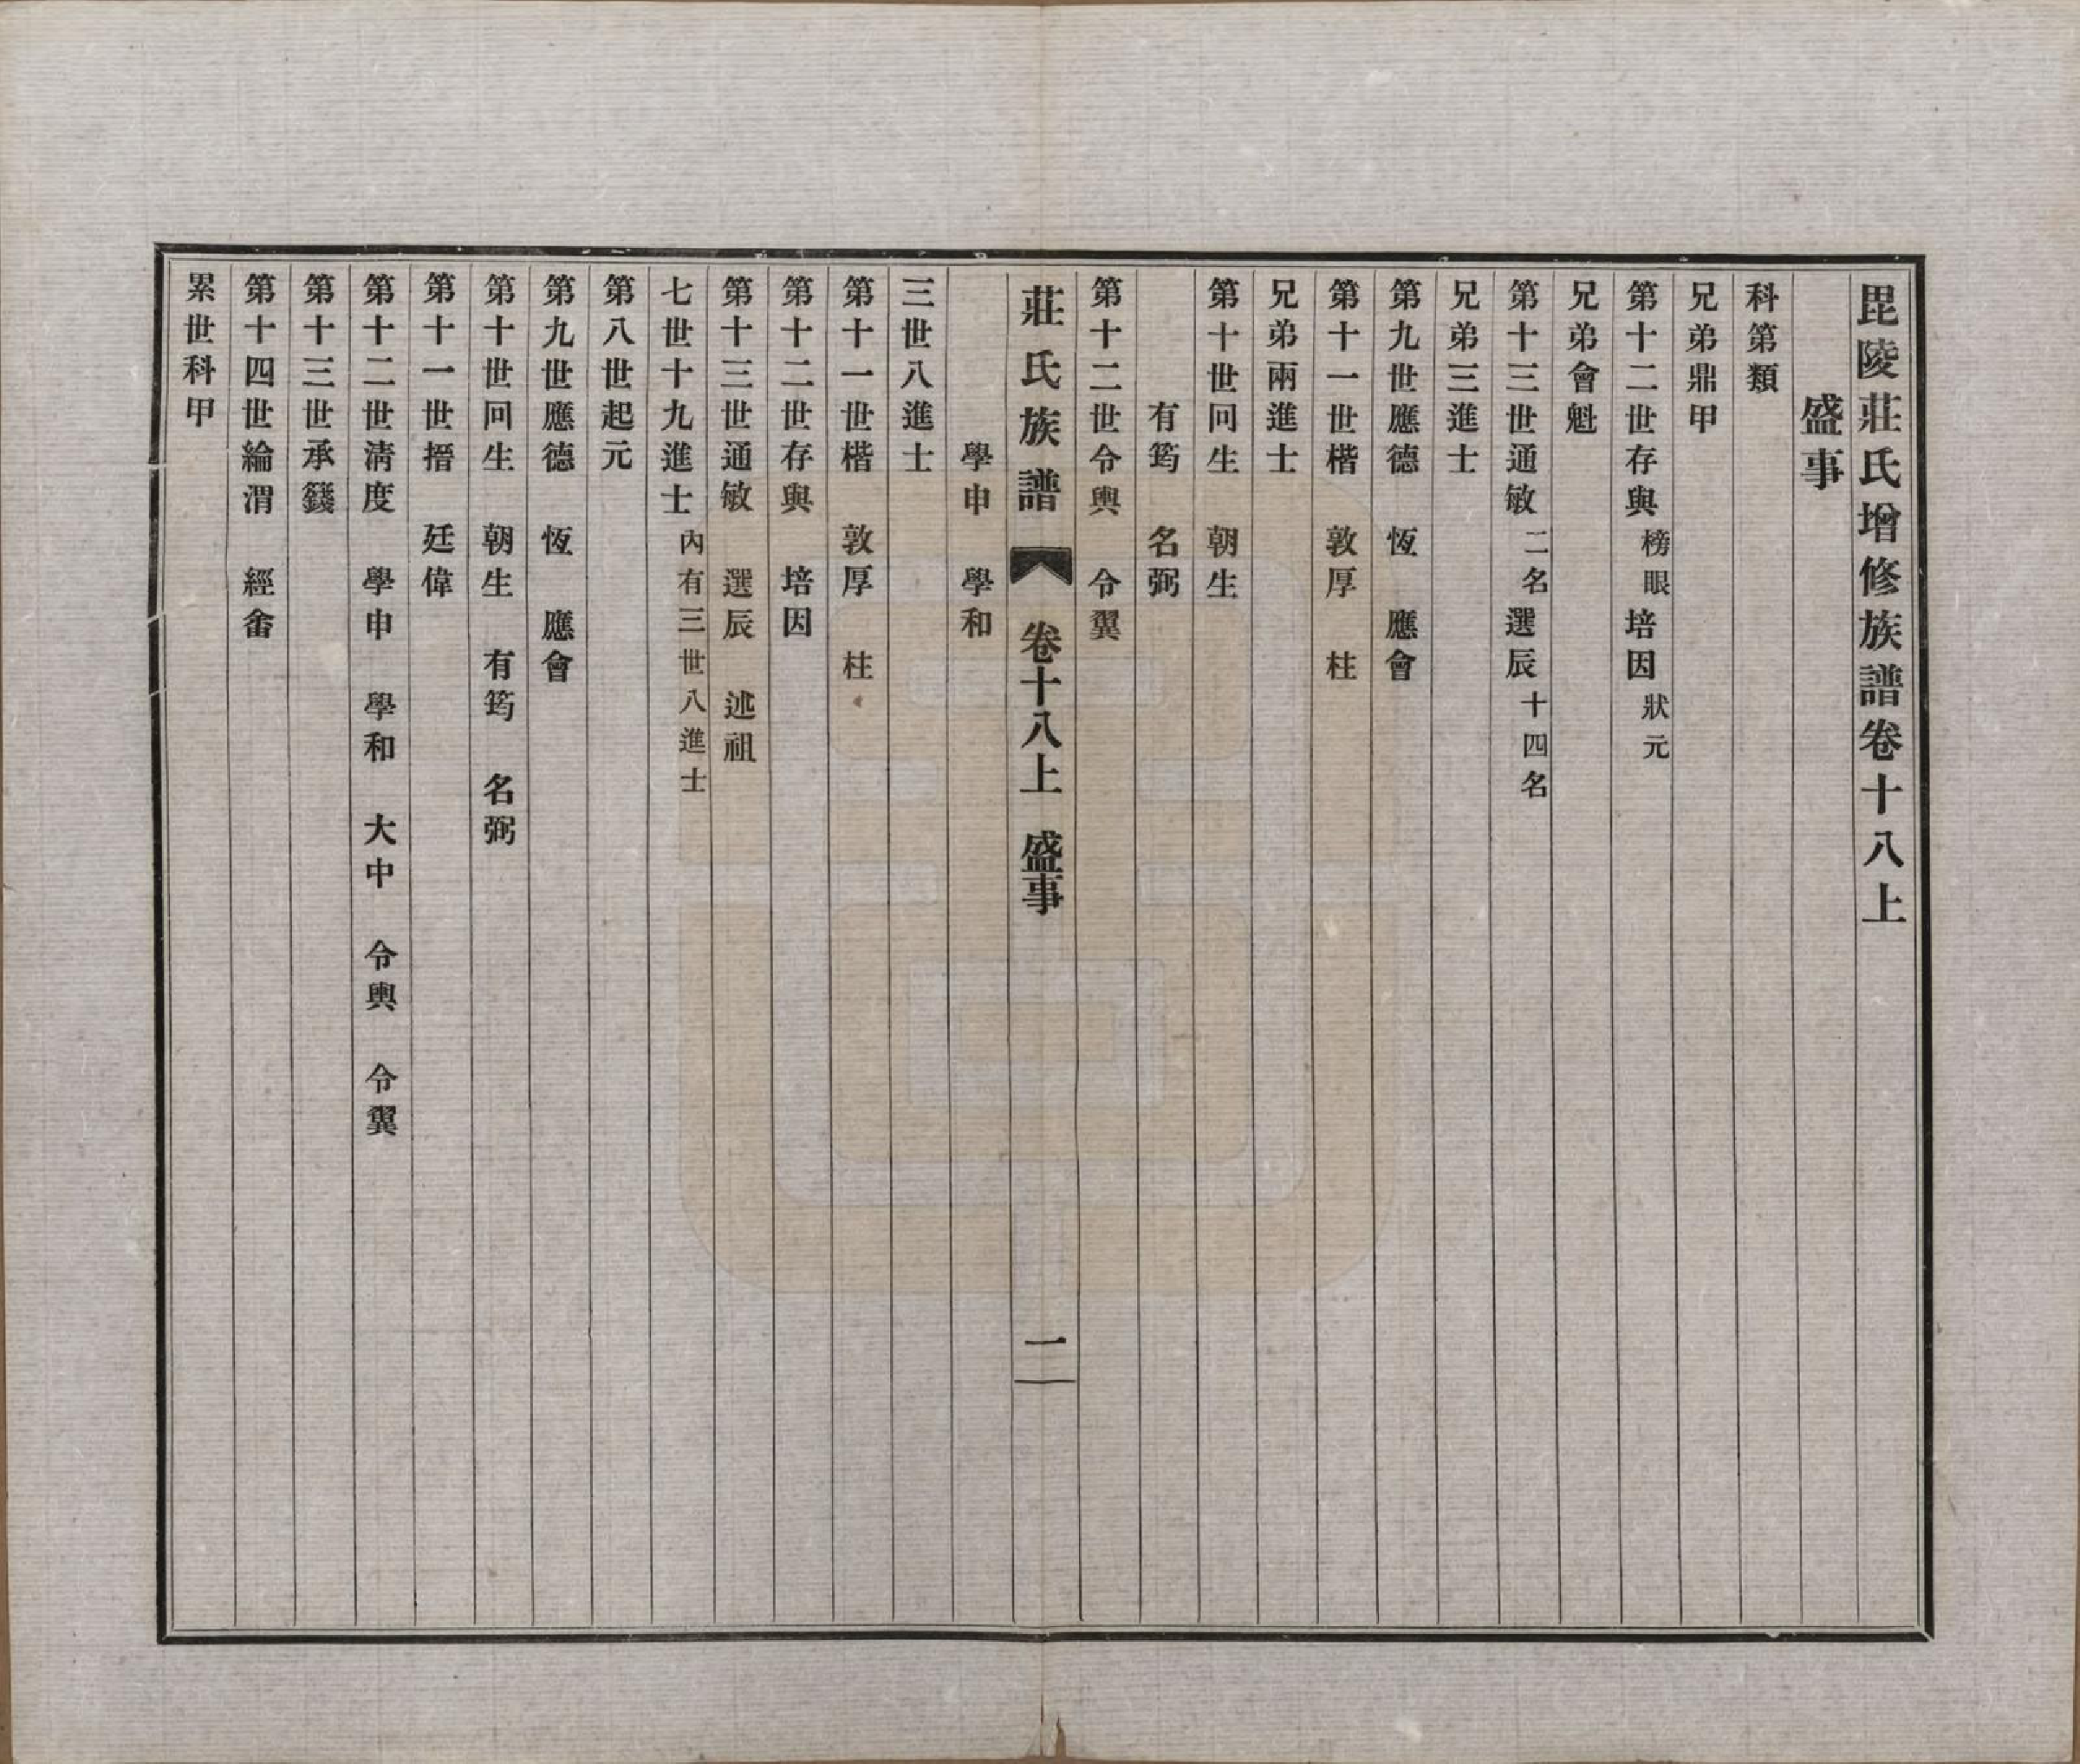 毘陵莊氏增修族譜卷十八上
盛事
科第類
兄弟鼎甲
第十二世存與榜眼培因狀元
兄弟會魁
第十三世通敏二名選辰十四名
兄弟三進士
第九世應德　恆　應會
第十一世楷　敦厚　柱
兄弟兩進士
第十世回生　朝生
有筠　名弼
第十二世令輿　令翼
莊氏族譜　卷十八上　盛事　一
學申　學和
三世八進士
第十一世楷　敦厚　柱
第十二世存與　培因
第十三世通敏　選辰　述祖
七世十九進士內有三世八進士
第八世起元
第九世應德　恆　應會
第十世回生　朝生　有筠　名弼
第十一世搢　廷偉
第十二世清度　學申　學和　大中　令輿　令翼
第十三世承籛
第十四世綸渭　經畬
累世科甲